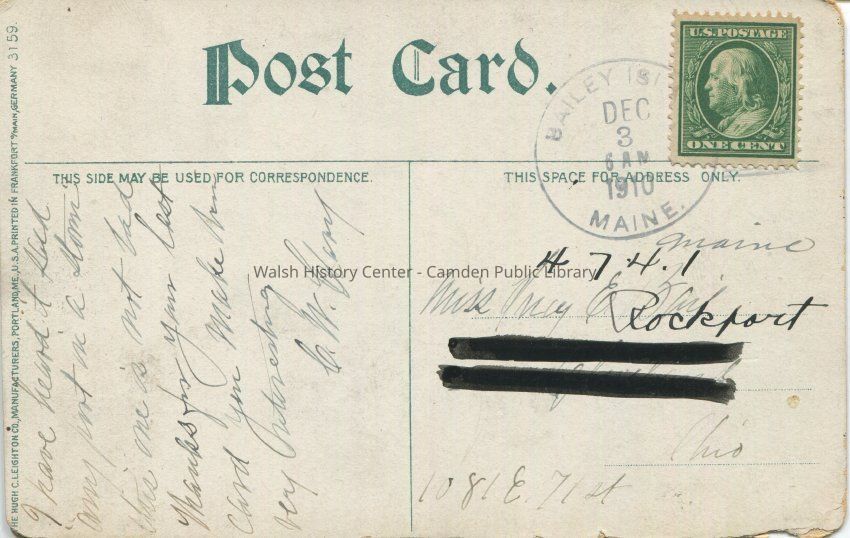 Post Card.
U.S. POSTAGE
ONE CENT
BAILEY IS
DEC
3
6 AM
1910
MAINE.
THIS SIDE MAY BE USED FOR CORRESPONDENCE.
THIS SPACE FOR ADDRESS ONLY.
THE HUGH C. LEIGHTON CO., MANUFACTURERS, PORTLAND, ME., U.S.A. PRINTED IN FRANKFORT o/MAIN, GERMANY 3159.
I have heard it said
any port in a storm
this one is not bad
Thanks for your last
card you make them
very interesting
C. W.
Maine
4741
Miss E.
Rockport
Ohio
1081 E. 71 st
Walsh History Center - Camden Public Library